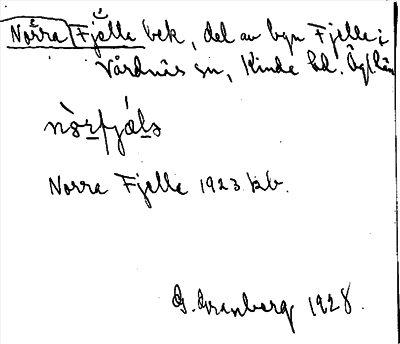 Norra Fjelle bek, del av byn Fjelle i
Vårdnäs sn, Kinda hd. Ögl län
nòrfjǽlə
Norra Fjelle 1923 kb.
G. Granberg 1928.